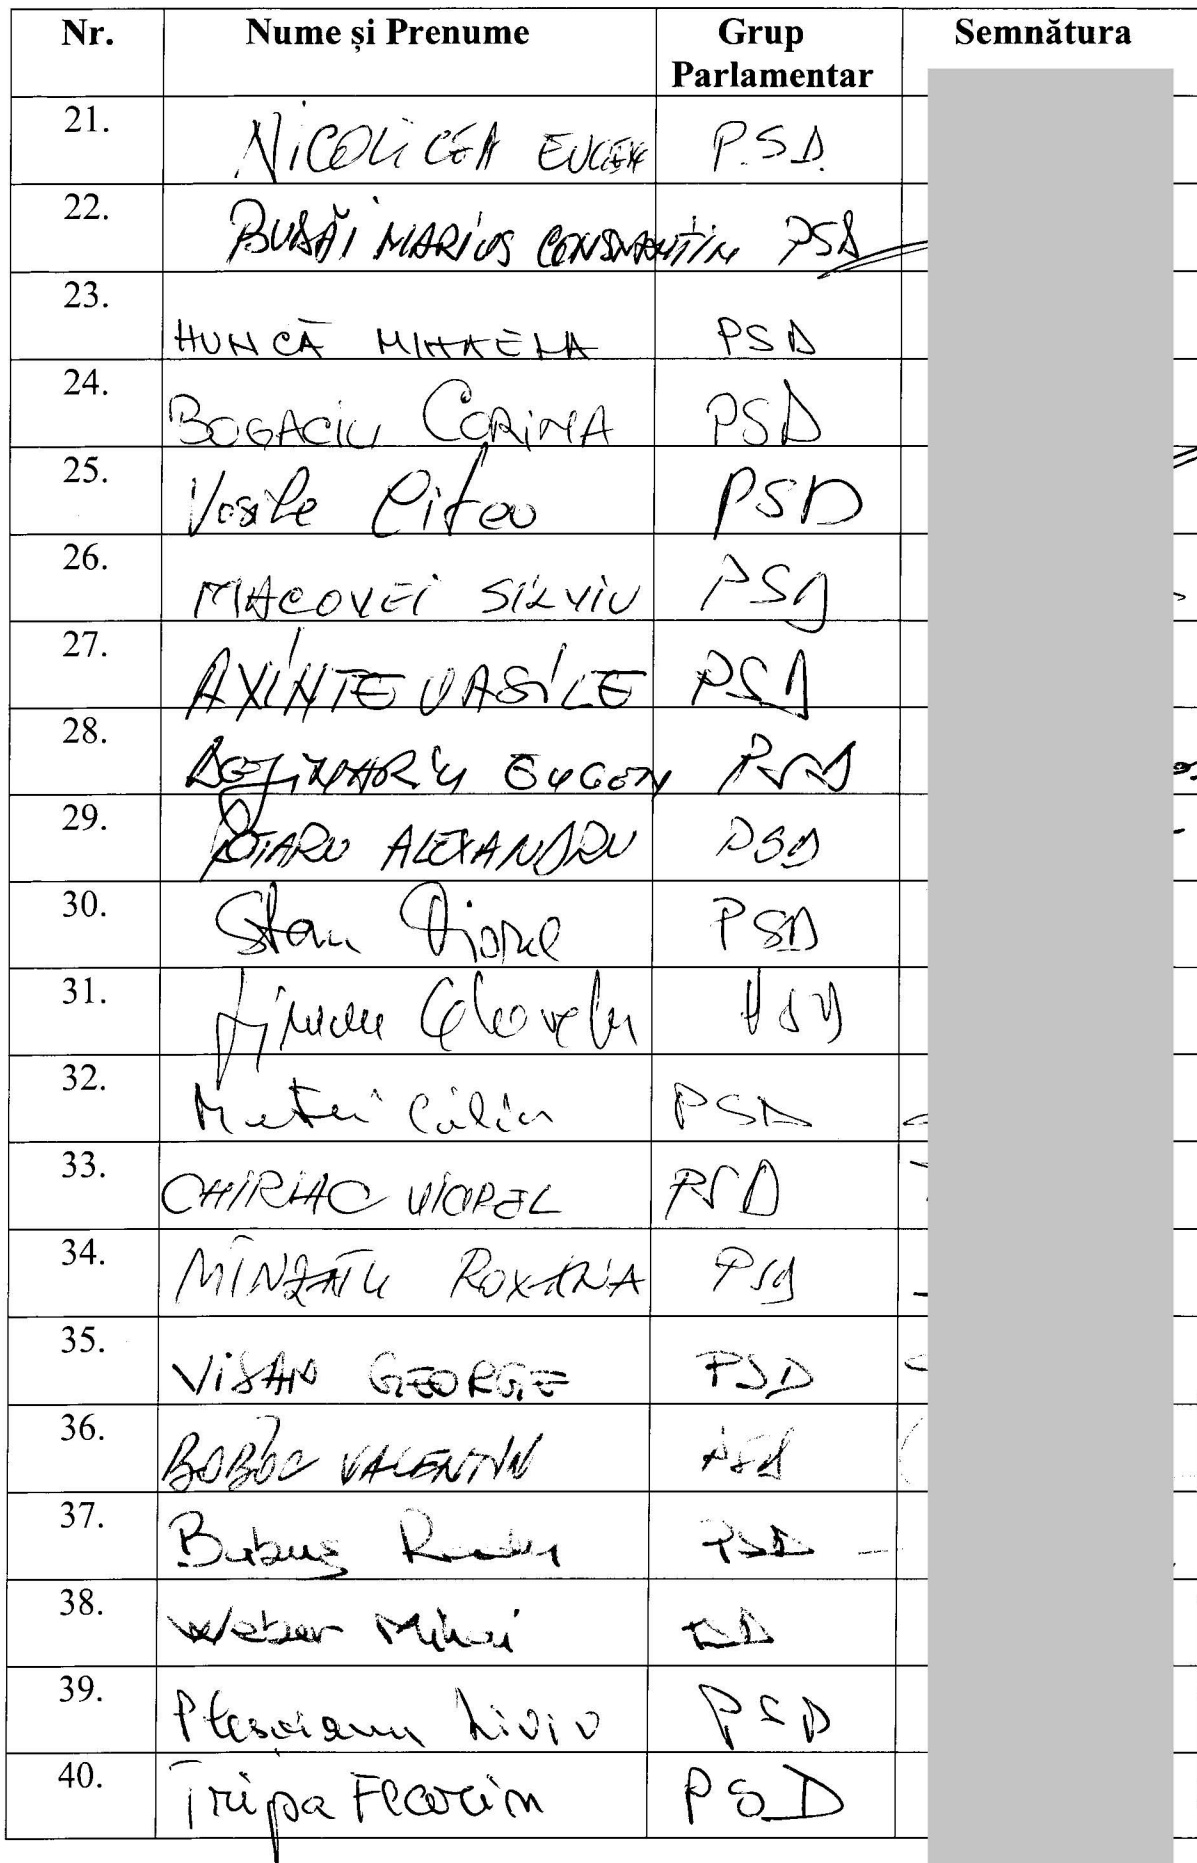 Nr. Nume și Prenume Grup Parlamentar Semnătura
21. NICOLICEA EUGEN P.S.D.
22. BUDĂI MARIUS CONSTANTIN PSD
23. HUNCĂ MIHAELA PSD
24. BOGACIU CORINA PSD
25. Vasile Cîtea PSD
26. MACOVEI SILVIU PSD
27. AXINTE VASILE PSD
28. BEJINARIU EUGEN PSD
29. ROTARU ALEXANDRU PSD
30. Stan Viorel PSD
31. PSD
32. Matei Călin PSD
33. CHIRIAC VIOREL PSD
34. MÎNZATU ROXANA PSD
35. VIŞAN GEORGE PSD
36. BOBOC VALENTIN PSD
37. Babuş Radu PSD
38. Weber Mihai PSD
39. Pleşoianu Liviu PSD
40. Tripa Florin PSD